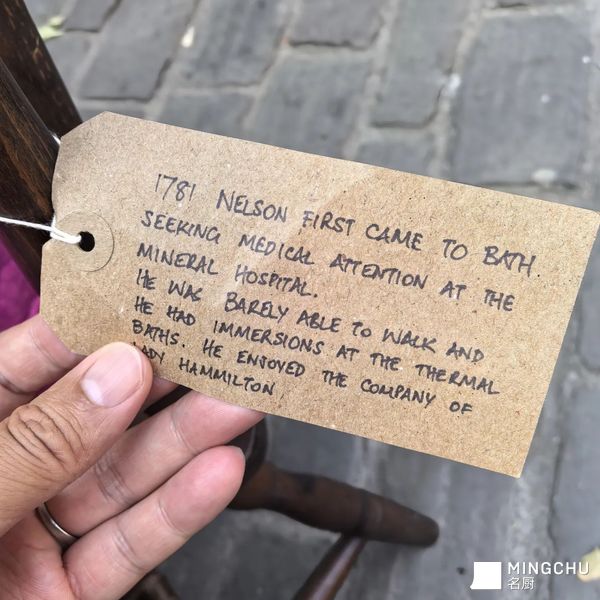 1781 NELSON FIRST CAME TO BATH
SEEKING MEDICAL ATTENTION AT THE
MINERAL HOSPITAL.
HE WAS BARELY ABLE TO WALK AND
HE HAD IMMERSIONS AT THE THERMAL
BATHS. HE ENJOYED THE COMPANY OF
LADY HAMMILTON
MINGCHU
名厨